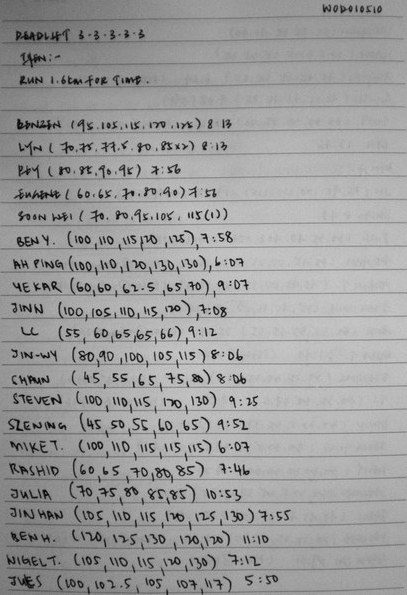 WOD010510
DEADLIFT 3-3-3-3-3
THEN:-
RUN 1.6KM FOR TIME.
BENZEN (95, 105, 115, 120, 125) 8:13
LYN (70, 75, 77.5, 80, 85x2) 8:13
BEY (80, 85, 90, 95) 7:56
EUGENE (60, 65, 70, 80, 90) 7:56
SOON WEI (70, 80, 95, 105, 115(1))
BEN Y. (100, 110, 115, 120, 125), 7:58
AH PING (100, 110, 120, 130, 130), 6:07
YEKAR (60, 60, 62.5, 65, 70), 9:07
JINN (100, 105, 110, 115, 120), 7:08
LC (55, 60, 65, 65, 66), 9:12
JIN-WY (80, 90, 100, 105, 115) 8:06
CHAUN (45, 55, 65, 75, 80) 8:06
STEVEN (100, 110, 115, 120, 130) 9:25
SZENING (45, 50, 55, 60, 65) 9:52
MIKE T. (100, 110, 115, 115, 115) 6:07
RASHID (60, 65, 70, 80, 85) 7:46
JULIA (70, 75, 80, 85, 85) 10:53
JINHAN (105, 110, 115, 120, 125, 130) 7:55
BEN H. (120, 125, 130, 120, 120) 11:10
NIGEL T. (105, 110, 115, 120, 130) 7:12
JULES (100, 102.5, 105, 107, 117) 5:50